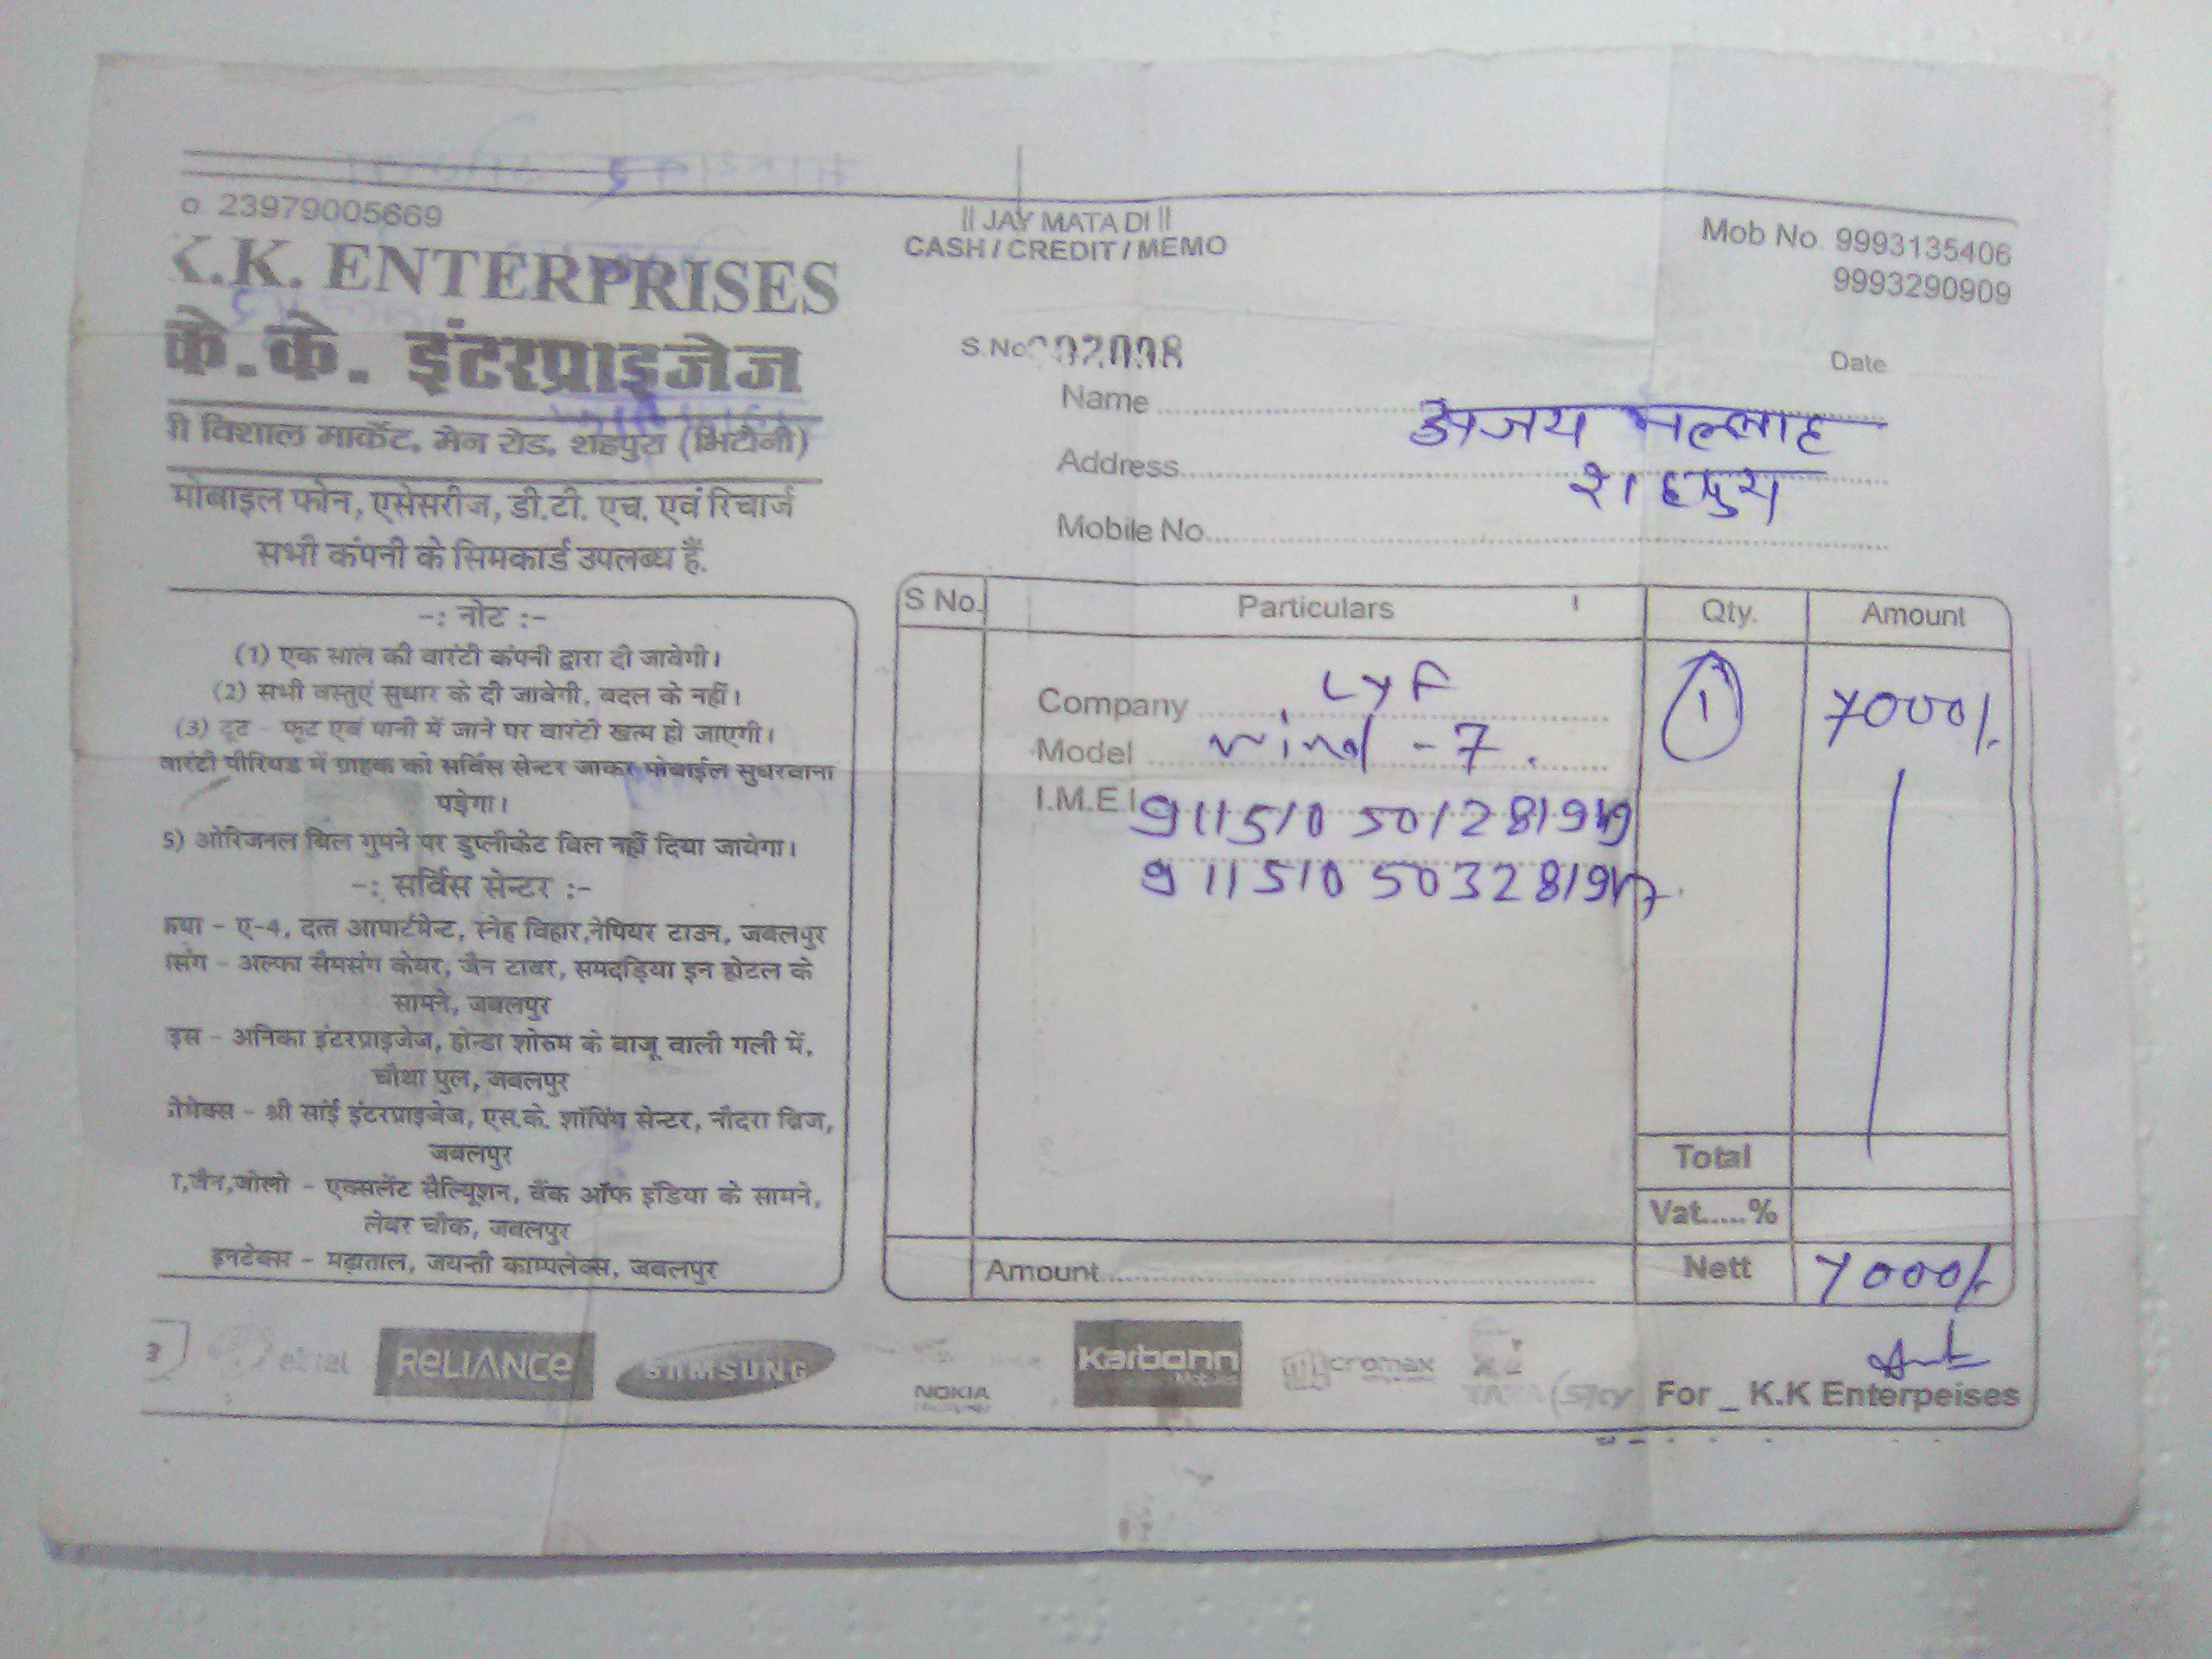 o 23979005669
K.K. ENTERPRISES
के.के. इंटरप्राइजेज
विशाल मार्केट, मेन रोड, शहपुरा (भिटौनी)
मोबाइल फोन, एसेसरीज, डी.टी. एच. एवं रिचार्ज
सभी कंपनी के सिमकार्ड उपलब्ध हैं.
-: नोट :-
(1) एक साल की वारंटी कंपनी द्वारा दी जावेगी।
(2) सभी वस्तुएं सुधार के दी जावेगी, बदल के नहीं।
(3) टूट - फूट एवं पानी में जाने पर वारंटी खत्म हो जाएगी।
वारंटी पीरियड में ग्राहक को सर्विस सेन्टर जाकर मोबाईल सुधरवाना
पड़ेगा।
5) ओरिजनल बिल गुमने पर डुप्लीकेट बिल नहीं दिया जायेगा।
-: सर्विस सेन्टर :-
ए-4, दत्त आपार्टमेन्ट, स्नेह विहार,नेपियर टाउन, जबलपुर
अल्फा सैमसंग केयर, जैन टावर, समदड़िया इन होटल के
सामने, जबलपुर
अनिका इंटरप्राइजेज, होन्डा शोरुम के बाजू वाली गली में,
चौथा पुल, जबलपुर
श्री सांई इंटरप्राइजेज, एस.के. शॉपिंग सेन्टर, नौदरा ब्रिज,
जबलपुर
,जेन,जोलो - एक्सलेंट सैल्यिूशन, बैंक ऑफ इंडिया के सामने,
लेबर चौक, जबलपुर
इनटेक्स - मढ़ाताल, जयन्ती काम्पलेक्स, जबलपुर
|| JAY MATA DI ||
CASH / CREDIT / MEMO
Mob No. 9993135406
9993290909
S.No.
Date
Name अजय मल्लाह
Address शहपुरा
Mobile No.
S No. Particulars Qty. Amount
Company LYF 1 7000/-
Model wind - 7.
I.M.E.I
Total
Vat.....%
Amount Nett 7000/-
airtel RELIANCE SAMSUNG NOKIA Karbonn Mobiles Micromax TATA Sky
For _ K.K Enterpeises